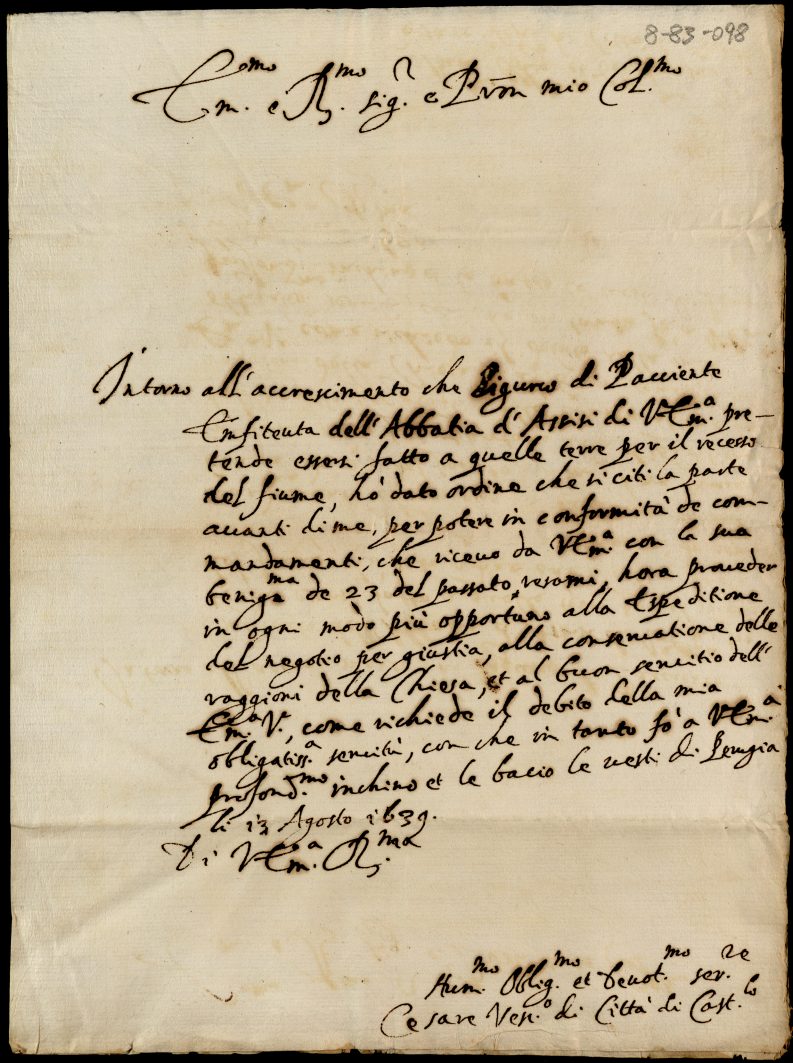 8-83-098
Em.mo e R.mo sig.r e Pron mio Col.mo
Intorno all'accrescimento che Ligurio di Pacciente
Emfiteuta dell'Abbatia d'Assisi di V.Em.a pre-
tende essersi fatto a quelle terre per il recesso
del fiume, hò dato ordine che si citi la parte
avanti di me, per potere in conformità de com-
mandamenti, che ricevo da V.Em.a con la sua
benign.ma de 23 del passato, hora proveder
in ogni modo più opportuno alla Espeditione
del negotio per giustia, alla conservatione delle
raggioni della Chiesa, et al buon servitio dell'
Em.a V., come richiede il debito della mia
obligatiss.a servitù, con che in tanto fò a V.Em.a
profond.mo inchino et le bacio le vesti di Perugia
li 13 Agosto 1639.
Di V.Em.a R.ma
Hum.mo Oblig.mo et Devot.mo ser.re
Cesare Vesc.o di Città di Cast.lo